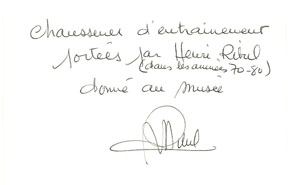 Chaussures d'entraînement
portées par Henri Ribul
(dans les années 70-80)
donné au musée